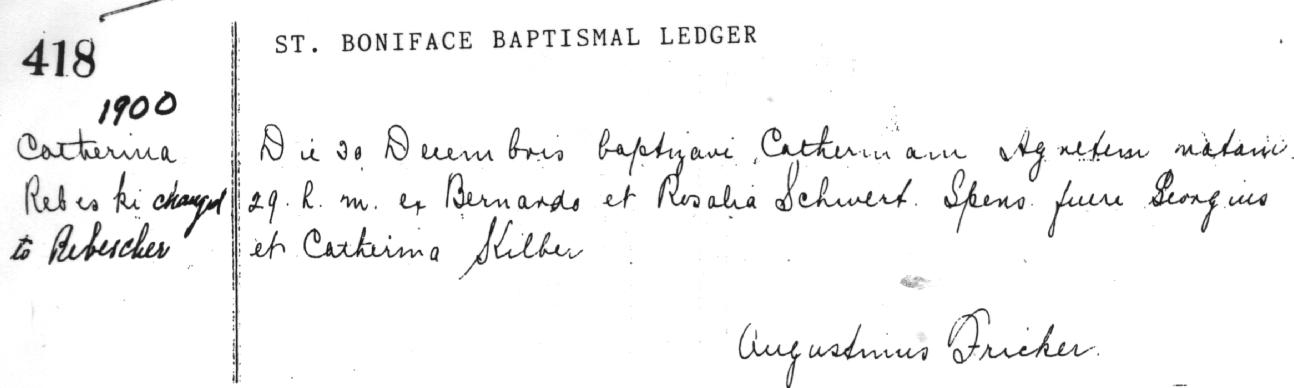 418
ST. BONIFACE BAPTISMAL LEDGER
1900
Catherina
Rebeski changed
to Rebescher
Die 30 Decembris baptizavi Catherinam Agnetem natam
29. h. m. ex Bernardo et Rosalia Schwert. Spons. fuere Georgius
et Catherina Kilber
Augustinus Fricker.